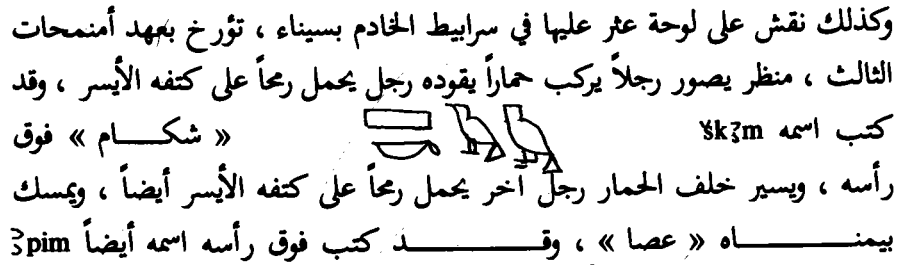 وكذلك نقش على لوحة عثر عليها في سرابيط الخادم بسيناء ، تؤرخ بعهد أمنمحات
الثالث ، منظر يصور رجلاً يركب حماراً يقوده رجل يحمل رمحاً على كتفه الأيسر ، وقد
كتب اسمه šk3m « شكام » فوق
رأسه ، ويسير خلف الحمار رجل آخر يحمل رمحاً على كتفه الأيسر أيضاً ، ويمسك
بيمناه « عصا » ، وقد كتب فوق رأسه اسمه أيضاً 3pim